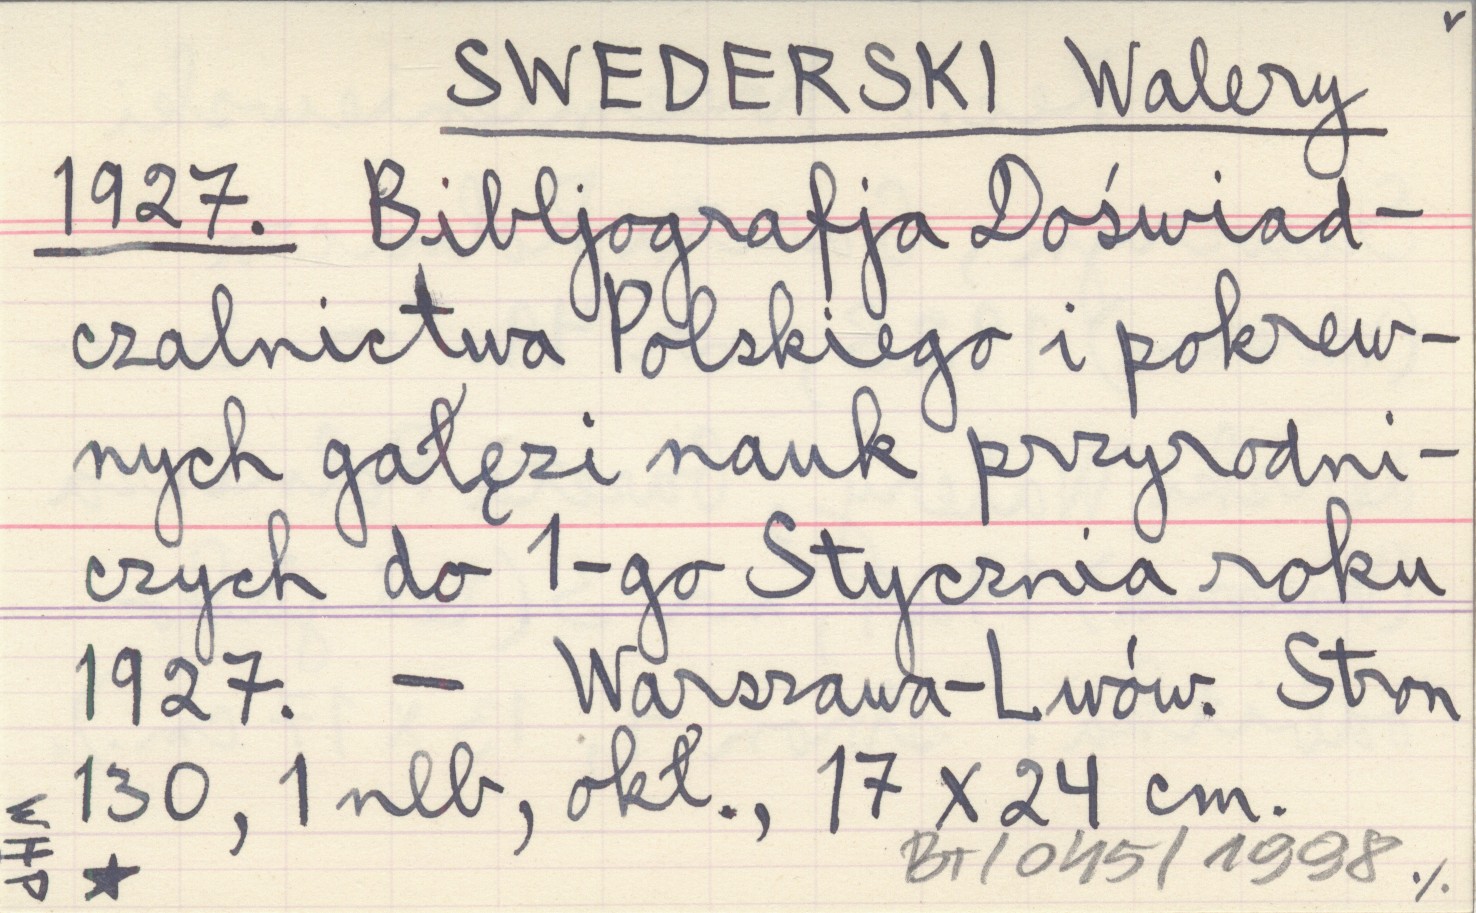 SWEDERSKI Walery
1927. Bibljografja Doświad-
czalnictwa Polskiego i pokrew-
nych gałęzi nauk przyrodni-
czych do 1-go Stycznia roku
1927. — Warszawa-Lwów. Stron
130, 1 nlb, okł., 17 x 24 cm.
WHP
BT/045/1998 ./.